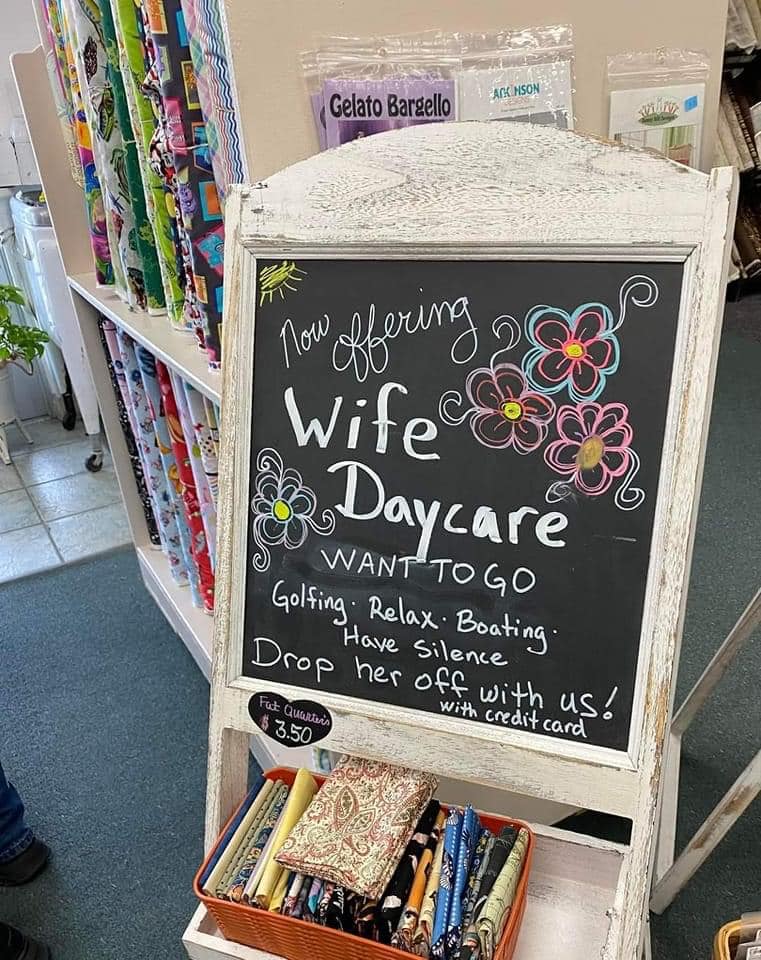 Gelato Bargello
Now offering
Wife
Daycare
WANT TO GO
Golfing · Relax · Boating ·
Have Silence
Drop her off with us!
with credit card
Fat Quarters
$ 3.50